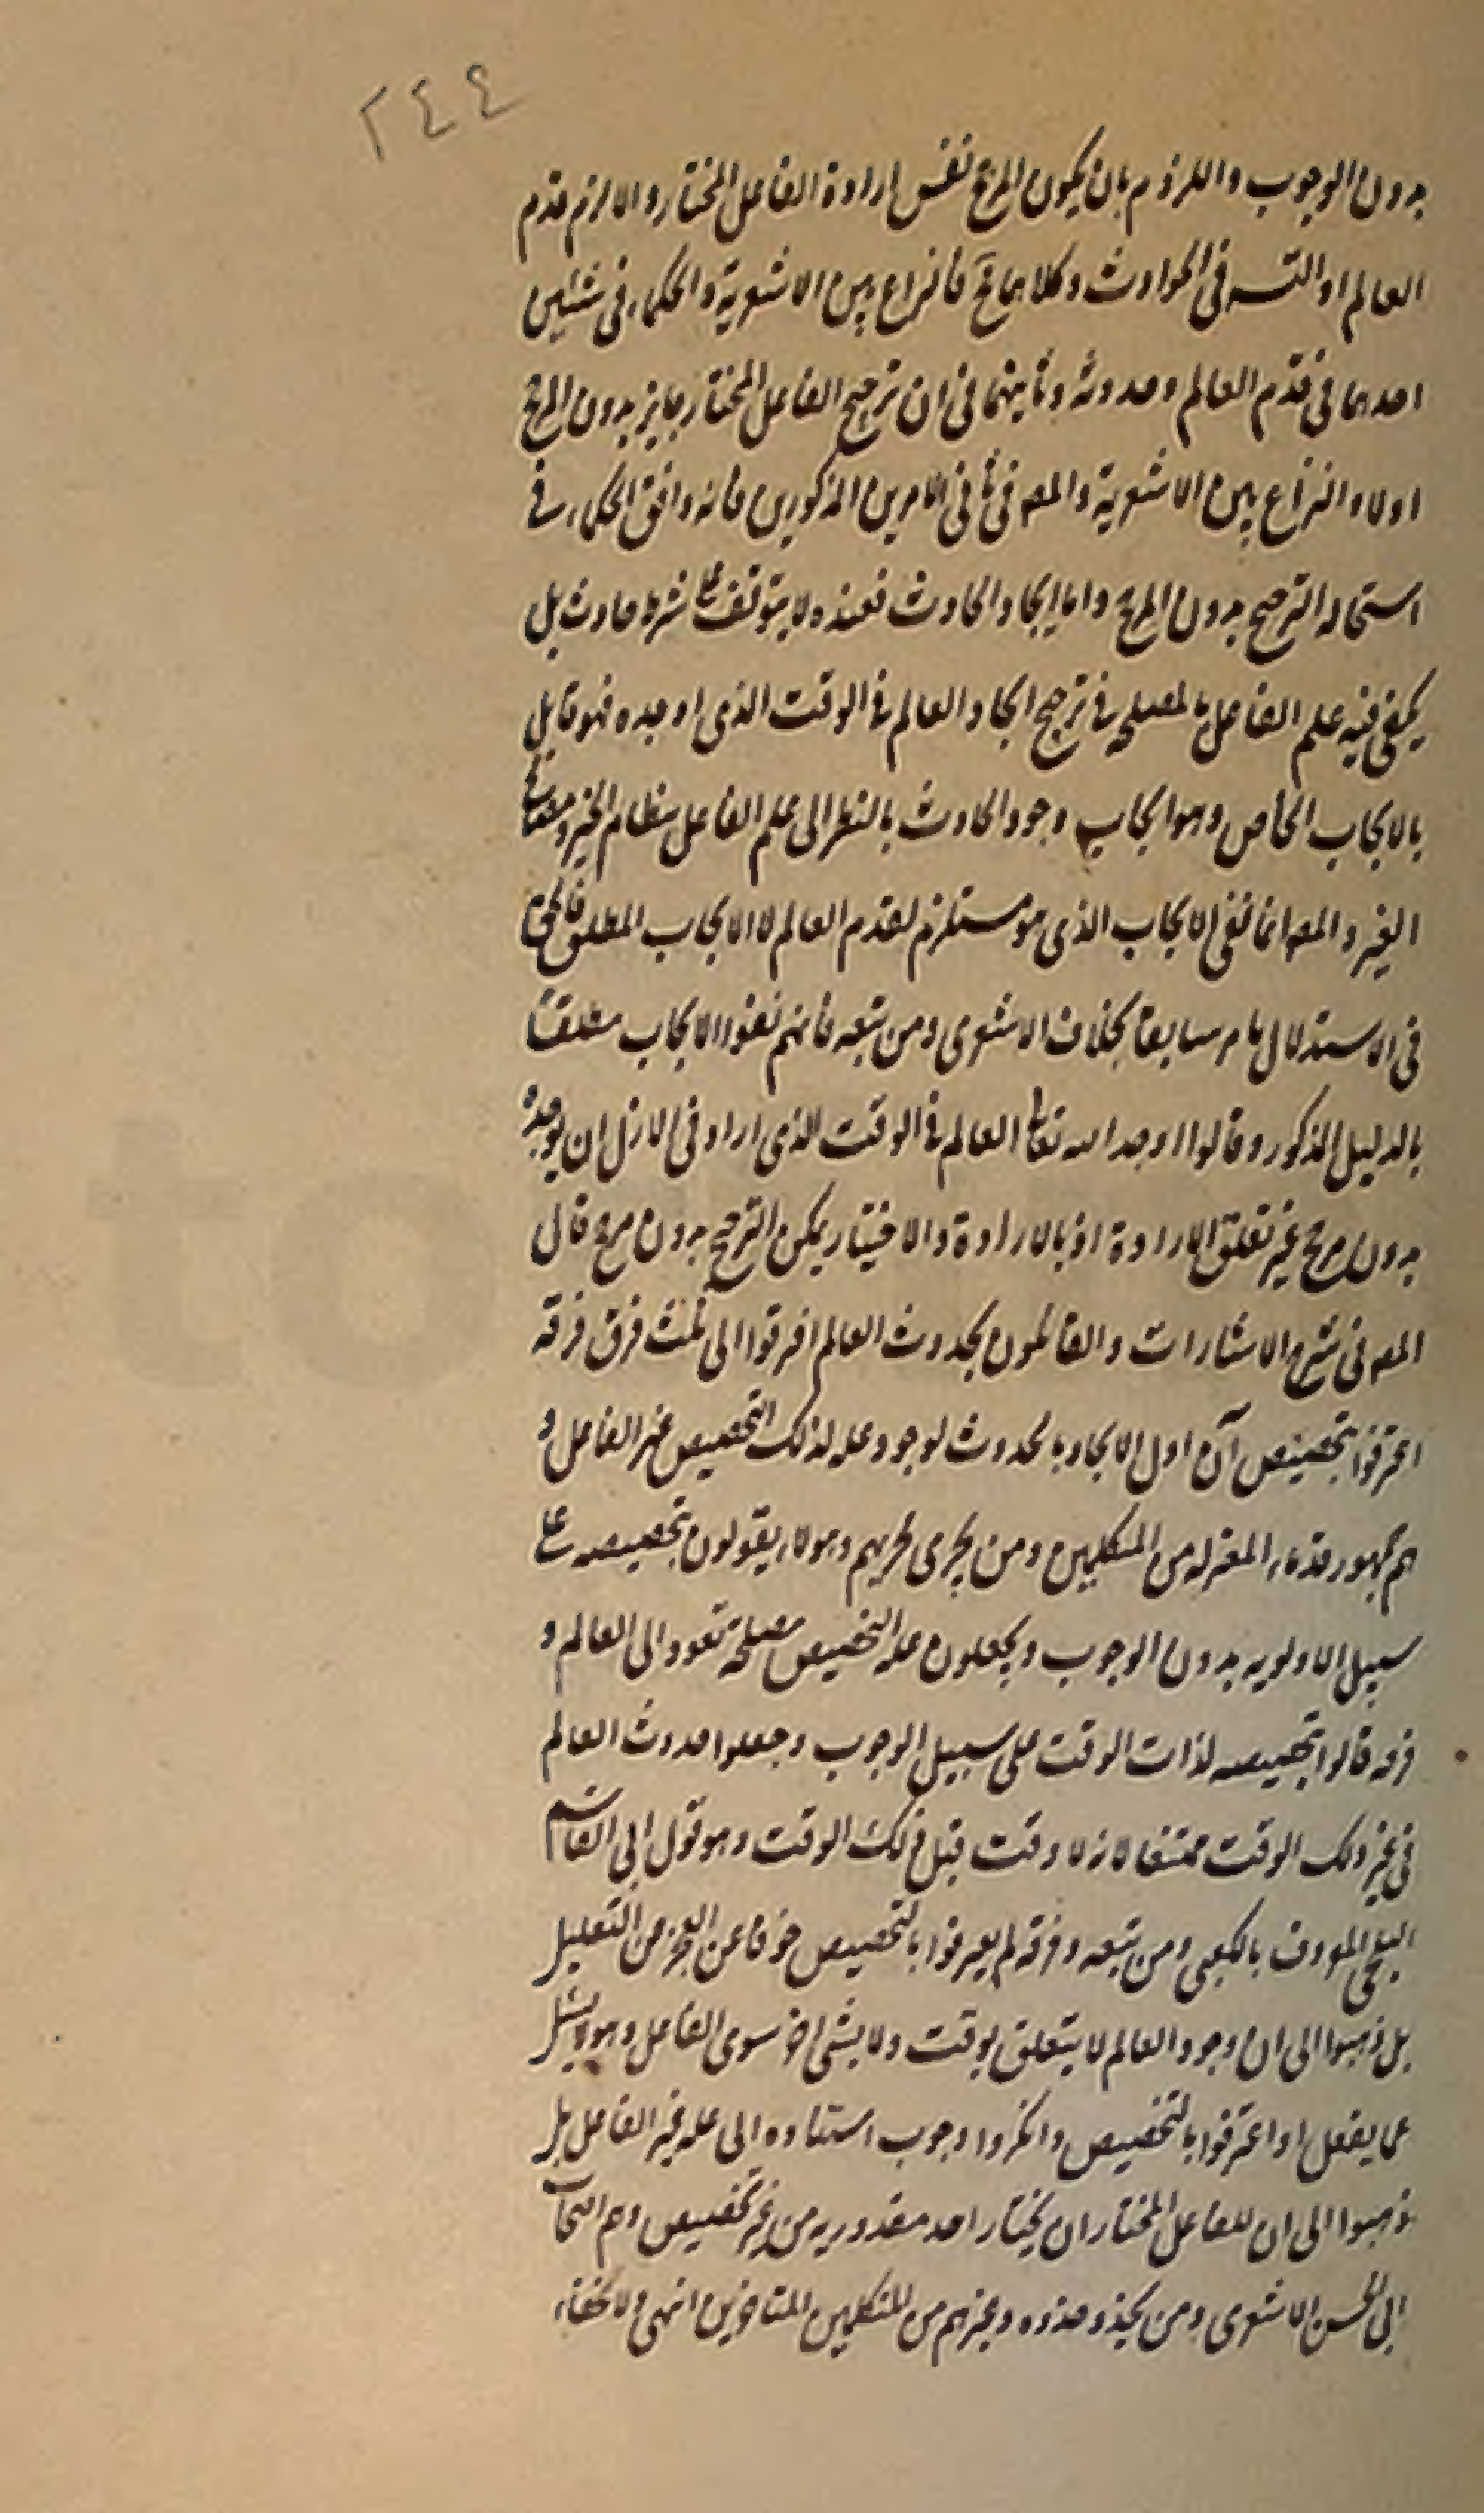 ٢٤٤
بدون الوجوب واللزوم بان يكون المرجح نفس ارادة الفاعل المختار والا لزم قدم
العالم او التسـ في الحوادث وكلاهما مح فالنزاع بين الاشعرية والحكماء في شيئين
احدهما في قدم العالم وحدوثه وثانيهما في ان ترجيح الفاعل المختار جايز بدون المرجح
اولا والنزاع بين الاشعرية والمصـ في الامرين المذكورين فانه وافق الحكماء في
استحالة الترجيح بدون المرجح واما ايجاد الحادث فعنده لا يتوقف على شرط حادث بل
يكفي فيه علم الفاعل بالمصلحة في ترجيح ايجاد العالم في الوقت الذي اوجده فهو قايل
بالايجاب الخاص وهو ايجاب وجود الحادث بالنظر الى علم الفاعل بنظام الخير
الغير والمصـ انما نفى الايجاب الذي هو مستلزم لقدم العالم لا الايجاب المطلق
في الاستدلال ما مر سابقا بخلاف الاشعري ومن تبعه فانهم نفوا الايجاب مطلقا
بالدليل المذكور وقالوا اوجد الله تعالى العالم في الوقت الذي اراد في الازل ان يوجد
بدون مرجح غير تعلق الارادة اذ بالارادة والاختيار يمكن الترجيح بدون مرجح قال
المصـ في شرح الاشارات والقائلون بحدوث العالم افترقوا الى ثلث فرق فرقة
اعترفوا بتخصيص آن اول الايجاد بالحدوث لوجود علة لذلك التخصيص غير الفاعل و
هم جمهور قدماء المعتزلة من المتكلمين ومن يجري مجريهم وهولاء يقولون بتخصيصه على
سبيل الاولوية بدون الوجوب ويجعلون علة التخصيص مصلحة تعود الى العالم و
فرقة قالوا بتخصيصه لذات الوقت على سبيل الوجوب وجعلوا حدوث العالم
في غير ذلك الوقت ممتنعا لانه لا وقت قبل ذلك الوقت وهو قول ابي القاسم
البلخي المعروف بالكعبي ومن تبعه وفرقة لم يعترفوا بالتخصيص خوفا عن العجز من التعليل
بل ذهبوا الى ان وجود العالم لا يتعلق بوقت ولا بشئ اخر سوى الفاعل وهو لا يسئل
عما يفعل او اعترفوا بالتخصيص وانكروا وجوب استناده الى علة غير الفاعل بل
ذهبوا الى ان للفاعل المختار ان يختار احد مقدوريه من غير تخصيص وهم اصحاب
ابي الحسن الاشعري ومن يحذو حذوه وغيرهم من المتكلمين المتاخرين انتهى ولا خفاء